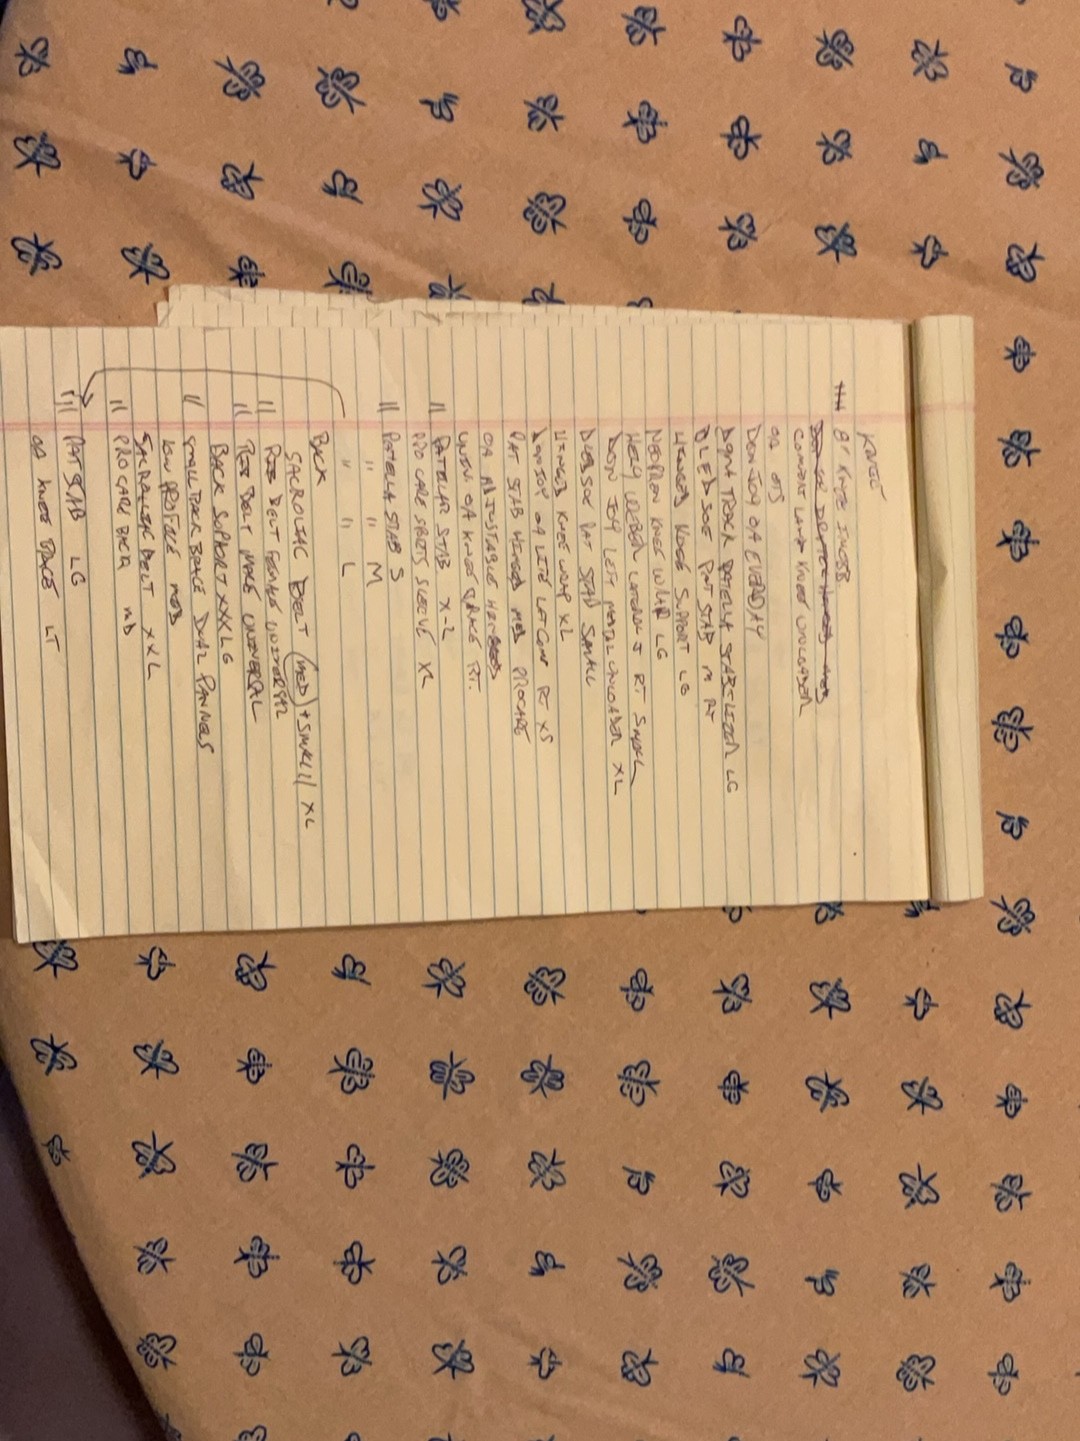 KNEE
8" KNEE IMOBB.
COMFORT LAND KNEE UNLOADER
OA OTS
DONJOY OA EVERDAY
DONJ TRACK PATELLA STABELIZER LG
BLEDSOE PAT STAB M RT
HINGED KNEE SUPPORT LG
NEOPREN KNEE WRAP LG
HELY WEBER LATERAL J RT SMALL
DON JOY LEFT MEDIAL UNLOADER XL
BLEDSOE PAT STAB SMALL
HINGED KNEE WRAP XL
OA LITE LATERAL RT XS
PAT STAB HINGED MED PROCARE
OA ADJUSTABLE
UNIV. OA KNEE BRACE RT.
|| PATELLAR STAB X-L
PRO CARE SPRTS SLEEVE XL
|| PATELLA STAB S
" " M
" " L
BACK
SACROLIAC BELT (MED) + SMALL XL
|| RIB BELT FEMALE UNIVERSAL
|| RIB BELT MALE UNIVERSAL
BACK SUPPORT XXXLG
|| SMALL BACK BRACE DUAL PANNELS
LOW PROFILE MED
SACRALIAC BELT XXL
|| PROCARE BACK MD
||| PAT STAB LG
OA KNEE BRACE LT